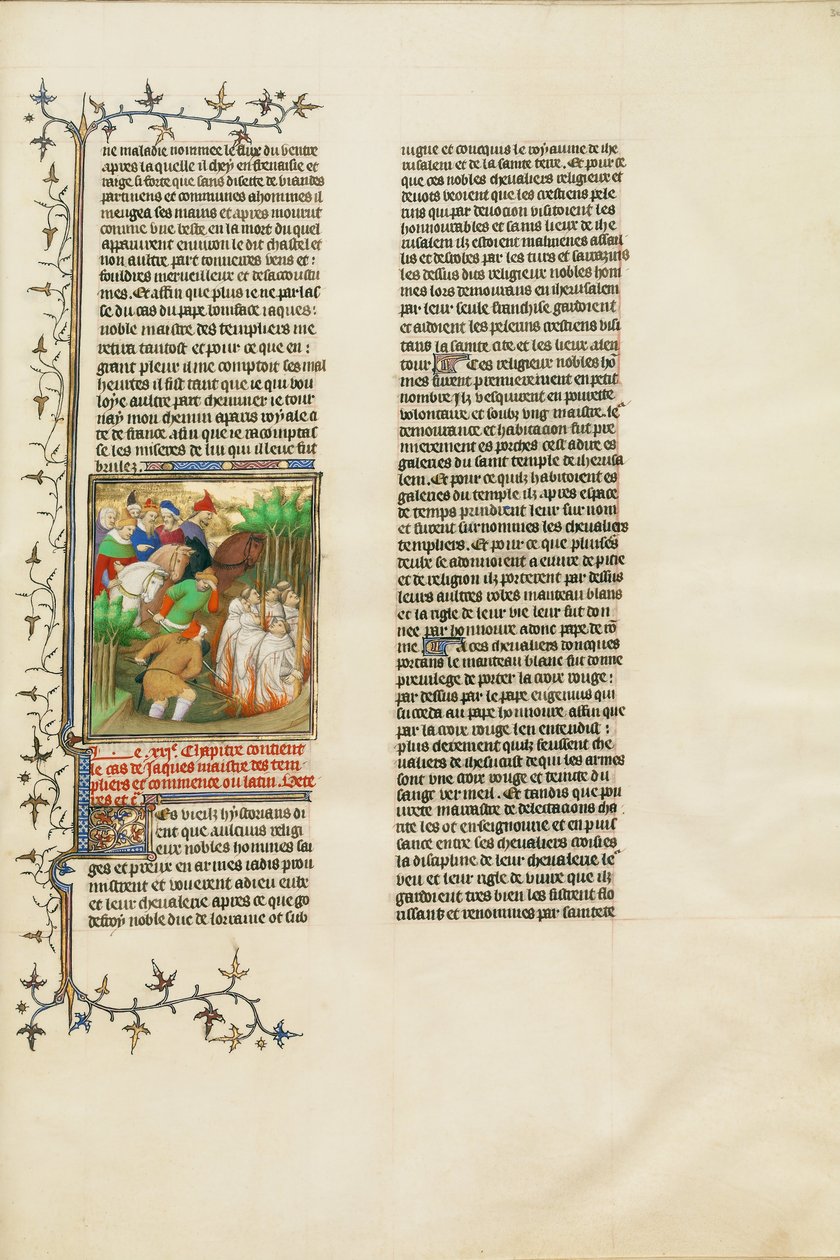 ne maladie nommee le flux du ventre
apres laquelle il chey en frenaisie et
rarge si forte que sans disette de viandes
partinens et communes a hommes il
mengea ses mains et apres mourut
comme une beste. en la mort du quel
apparurent environ le dit chastel et
non aultre part tonnerres vens et
fouldres merveilleux et desaccoustu
mes. Et affin que plus ie ne parlas
se du cas du pape boniface iaques
noble maistre des templiers me
retira tantost et pour ce que en
grant pleur il me comptoit ses mal
heurtes il fist tant que ie qui vou
loye aultre part cheminer ie tour
nay mon chemin a paris royale ci
te de france. afin que ie racomptas
se les miseres de lui qui illeuc fut
brulez.
Le .xxi.e Chapitre contient
le cas de Jaques maistre des tem
pliers et commence ou latin. Vete
res et c.
Les vieilz hystorians di
ent que aulcuns religi
eux nobles hommes sai
ges et preux en armes iadis prou
mistrent et vouerent a dieu eulx
et leur chevalerie apres ce que go
defroy noble duc de lorraine ot sub
iugue et conquis le royaume de ihe
rusalem et de la sainte terre. Et pour ce
que ces nobles chevaliers religieux et
devots veoient que les crestiens pele
rins qui par devocion visitoient les
honnourables et sains lieux de ihe
rusalem ilz estoient malmenes assail
lis et desrobes par les turs et sarrazins
les dessus dits religieux nobles hom
mes lors demourans en iherusalem
par leur seule franchise gardoient
et aidoient les pelerins crestiens visi
tans la sainte cite et les lieux alen
tour. Ces religieux nobles hō
mes furent premierement en petit
nombre Ilz vesquirent en pourete
volontaire et soubz ung maistre. le
demourance et habitacion fut pre
mierement es porches cest a dire es
galeries du saint temple de iherusa
lem. Et pour ce quilz habitoient es
galeries du temple ilz apres espace
de temps prindrent leur sur nom
et furent surnommes les chevaliers
templiers. Et pour ce que pluiseurs
deulx se adonnoient a euvre de pitie
et de religion ilz porterent par dessus
leurs aultres robes manteau blanc
et la rigle de leur vie leur fut don
nee par honnoure adonc pape de rō
me. A ces chevaliers doncques
portans le manteau blanc fut donne
previlege de porter la croix rouge
par dessus par le pape eugenius qui
succeda au pape honnoure affin que
par la croix rouge len entendist
plus clerement quilz feussent che
valiers de ihesucrist de qui les armes
sont une croix rouge et teinte du
sang vermeil. Et tandis que pou
urete marrastre de delectacions cha
rite les ot enseignourie et en puis
sance entre ses chevaliers croisies
la discipline de leur chevalerie le
veu et leur rigle de vivre que ilz
gardoient tres bien les fistrent flo
rissans et renommes par saintete